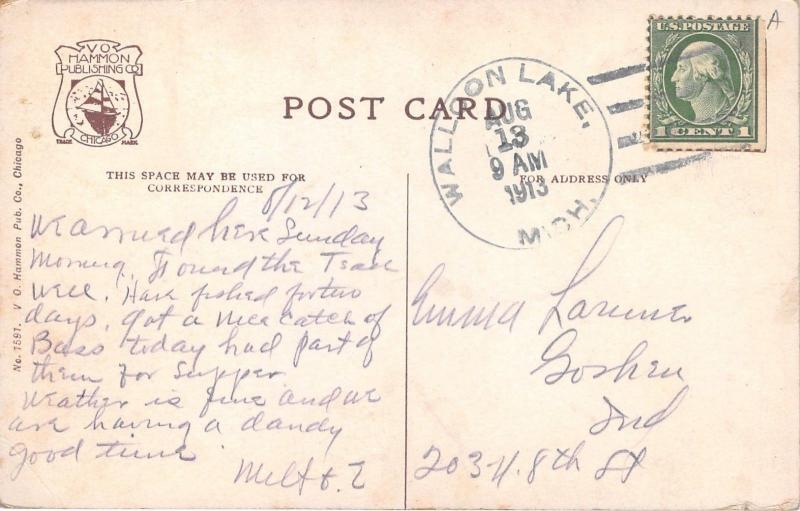 V O
HAMMON
PUBLISHING CO
CHICAGO
TRADE MARK
POST CARD
WALLOON LAKE,
AUG
13
9 AM
1913
MICH.
U.S. POSTAGE
1 CENT 1
A
THIS SPACE MAY BE USED FOR
CORRESPONDENCE
FOR ADDRESS ONLY
No. 1591. V O. Hammon Pub. Co., Chicago
8/12/13
We arrived here Sunday
Morning. Found the
well. Have fished for two
days, got a nice catch of
Bass today had part of
them for Supper
Weather is fine and we
are having a dandy
good time
Milt
Emma
Goshen
Ind
8th St